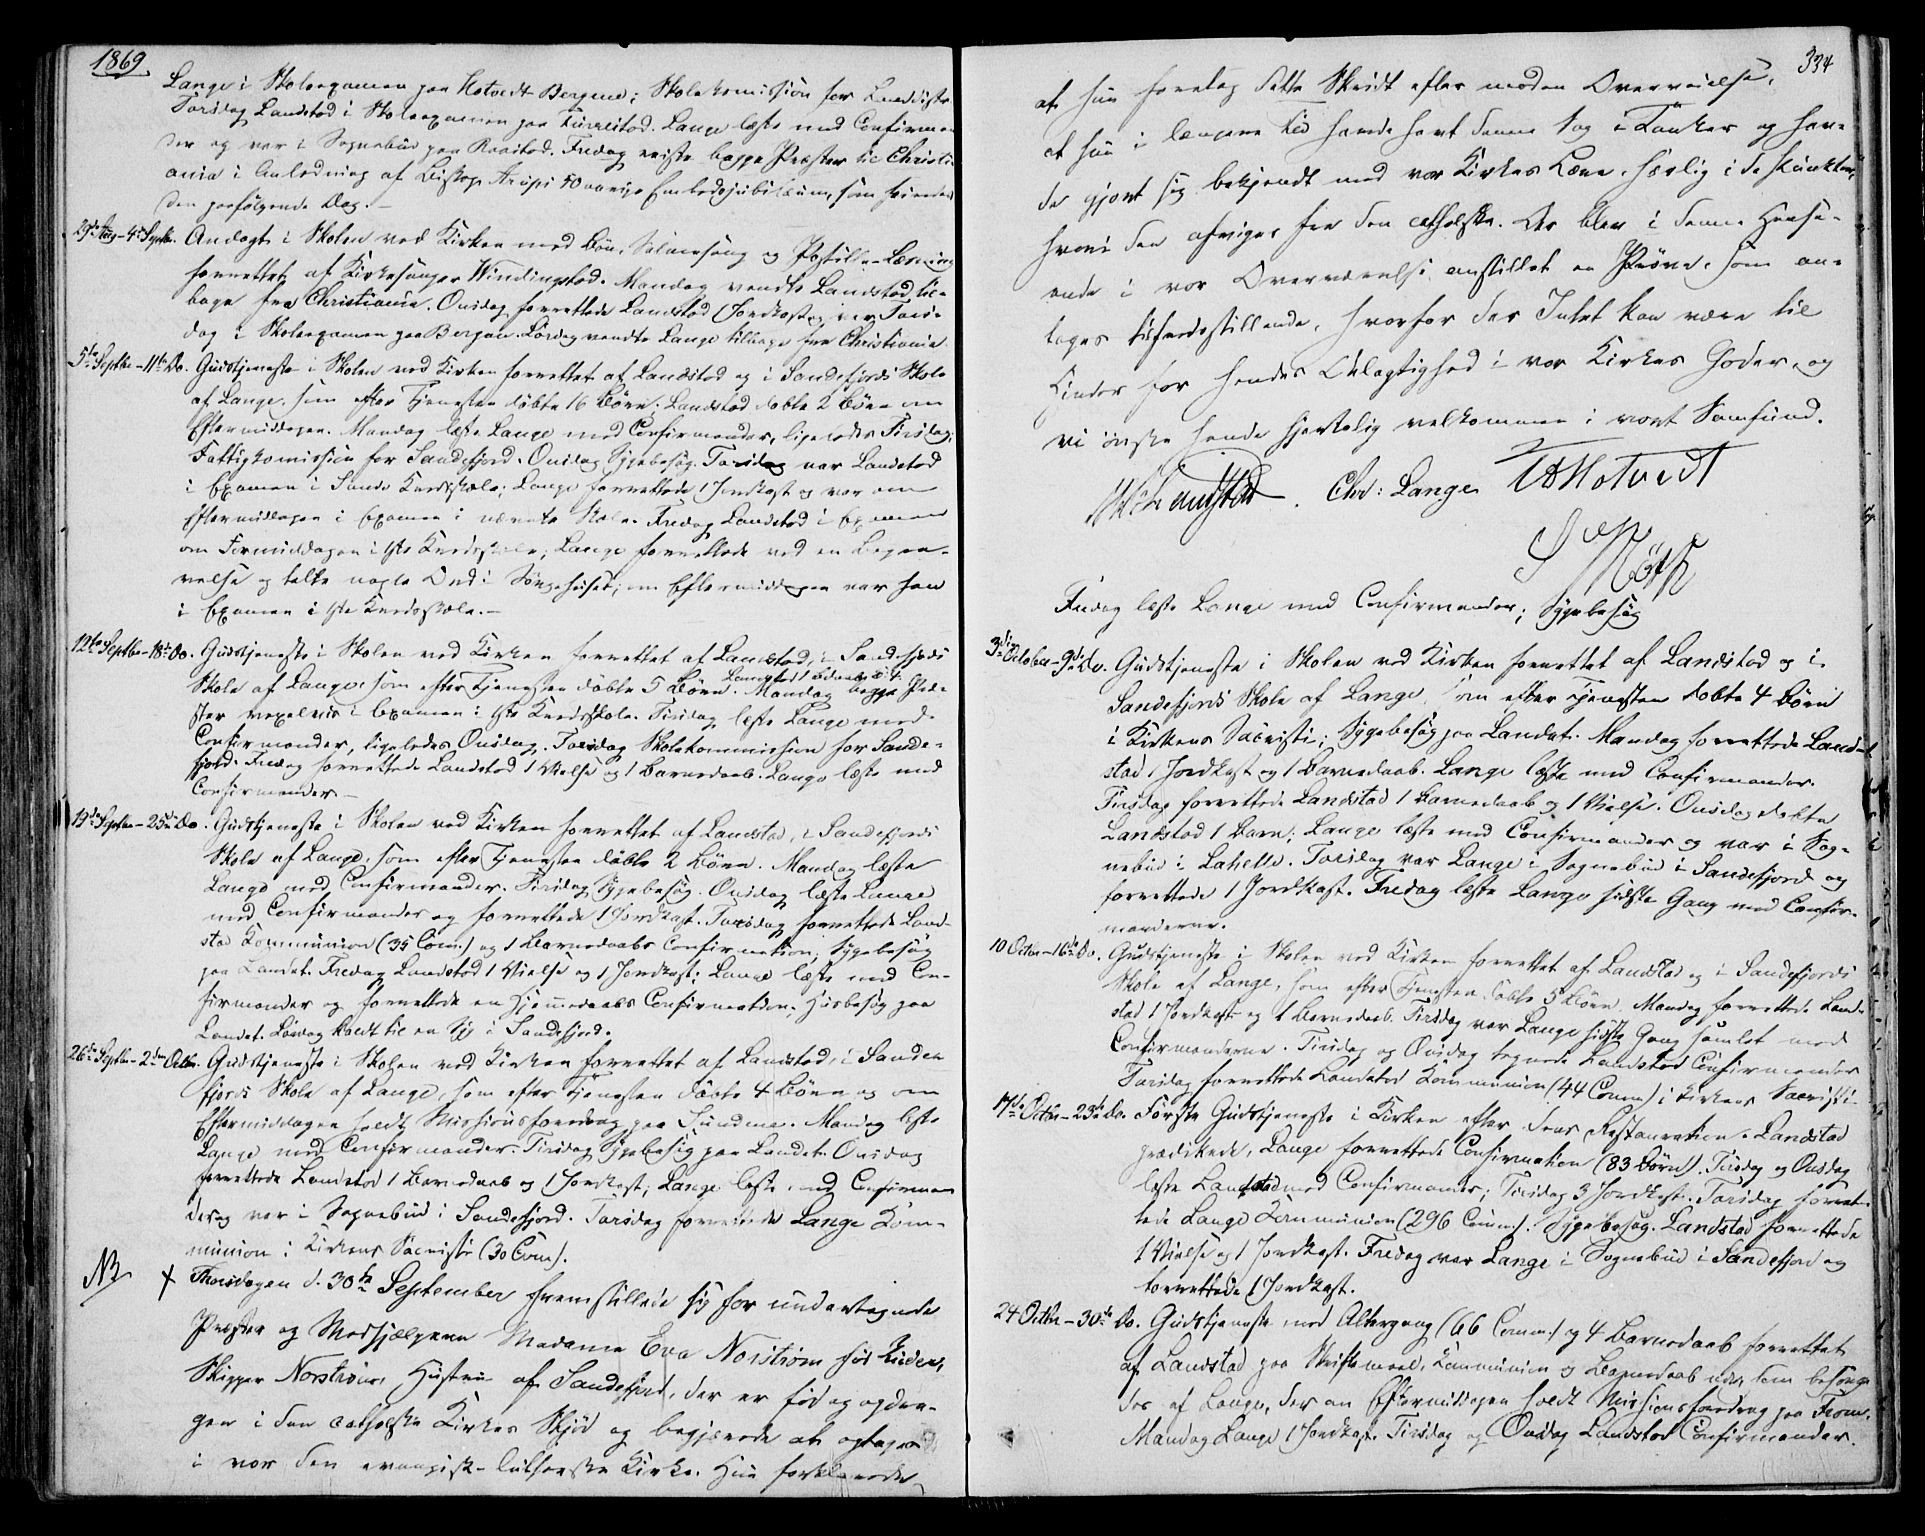 1869
Lange i Skoleexamen paa Hotvedt Bergene; Skolekomission for Landdistr.
Torsdag Landstad i Skoleexamen paa Furrestad. Lange læste med Confirman
der og var i Sognebud paa Raastad. Fredag reiste begge Præster til Christi
ania i Anledning af Biskop Arups 50 aarige Embedsjubilæum, som feiredes
den paafølgende Dag. –
29de Aug – 4de Septbr. Andagt i Skolen ved Kirken med Bøn, Salmesang og Postille-Læsning
forrettet af Kirkesanger Windingstad. Mandag vendte Landstad til-
bage fra Christiania. Onsdag forrettede Landstad 1 Jordkast og var Tors-
dag i Skoleexamen paa Bergan. Lørdag vendte Lange tilbage fra Christiania
5te Septbr – 11te Do. Gudstjeneste i Skolen ved Kirken forrettet af Landstad og i Sandefjords Skole
af Lange, som efter Tjenesten døbte 16 Børn; Landstad døbte 2 Børn om
Eftermiddagen. Mandag læste Lange med Confirmander, ligeledes Tirsdag;
Fattigkomission for Sandefjord. Onsdag Sygebesøg. Torsdag var Landstad
i Examen i Sande Kredsskole; Lange forrettede 1 Jordkast og var om
Eftermiddagen i Examen i nævnte Skole. Fredag Landstad i Examen
om Formiddagen i 1ste Kredsskole; Lange forrettede ved en Begra-
velse og talte nogle Ord i Sørgehuset; om Eftermiddagen var han
i Examen i 1ste Kredsskole. –
12te Septbr – 18de Do. Gudstjeneste i Skolen ved Kirken forrettet af Landstad, i Sandefjords
Skole af Lange, som efter Tjenesten døbte 5 Børn. Mandag begge Præ-
ster vexelvis i Examen i 1ste Kredsskole. Tirsdag læste Lange med
Confirmander, ligeledes Onsdag. Torsdag Skolekommission for Sande-
fjord. Fredag forrettede Landstad 1 Vielse og 1 Barnedaab. Lange læste med
Confirmander. –
19de Septbr – 25de Do. Gudstjeneste i Skolen ved Kirken forrettet af Landstad, i Sandefjords
Skole af Lange, som efter Tjenesten døbte 2 Børn. Mandag læste
Lange med Confirmander. Tirsdag Sygebesøg. Onsdag læste Lange
med Confirmander og forrettede 1 Jordkast. Torsdag forrettede Land-
stad Kommunion (35 Comm.) og 1 Barnedaabs Confirmation; Sygebesøg
paa Landet. Fredag Landstad 1 Vielse og 1 Jordkast; Lange læste med Con-
firmander og forrettede en Hjemmedaabs Confirmation; Husbesøg paa
Landet. Lørdag kaldt til en Syg i Sandefjord.
26de Septbr – 2den Octbr. Gudstjeneste i Skolen ved Kirken forrettet af Landstad, i Sande
fjords Skole af Lange, som efter Tjenesten døbte 4 Børn og om
Eftermiddagen holdt Missionsforedrag paa Sundene. Mandag læste
Lange med Confirmander. Tirsdag Sygebesøg paa Landet. Onsdag
forrettede Landstad 1 Barnedaab og 1 Jordkast; Lange læste med Confirman
der og var i Sognebud i Sandefjord. Torsdag forrettede Lange Kom-
munion i Kirkens Sacristie (30 Com).
NB + Thorsdagen d. 30te September fremstillede sig for undertegnede
Præster og Medhjælpere Madame Eva Norstrøm født
Skipper Norstrøms Hustru af Sandefjord, der er fød og opdra-
gen i den catholske Kirkes Skjød og begjærede at optages
i vor den evangelisk-lutherske Kirke. Hun forklarede,
334
at hun foretog dette Skridt efter moden Overveielse,
at hun i længere Tid havde havt denne Sag i Tanker og hav-
de gjort sig bekjendt med vor Kirkes Lære, særlig i de Punkter,
hvori den afviger fra den catholske. Der blev i denne Hense-
ende i vor Overværelse anstillet en Prøve, som an-
toges tilfredsstillende, hvorfor der Intet kan være til
Hinder for hendes Delagtighed i vor Kirkes Goder, og
vi ønske hende hjertelig velkommen i vort Samfund.
MBLandstad. Chr: Lange Hotvedt
Fredag læste Lange med Confirmander; Sygebesøg
3die October – 9de Do. Gudstjeneste i Skolen ved Kirken forrettet af Landstad og i
Sandefjords Skole af Lange, som efter Tjenesten døbte 4 Børn
i Kirkens Sacristi; Sygebesøg paa Landet. Mandag forrettede Land-
stad 1 Jordkast og 1 Barnedaab. Lange læste med Confirmander.
Tirsdag forrettede Landstad 1 Barnedaab og 1 Vielse. Onsdag døbte
Landstad 1 Barn; Lange læste med Confirmander og var i Sog-
nebud i Lahelle. Torsdag var Lange i Sognebud i Sandefjord og
forrettede 1 Jordkast. Fredag læste Lange sidste Gang med Confir-
manderne.
10 Octbr – 16de Do. Gudstjeneste i Skolen ved Kirken forrettet af Landstad og i Sandefjords
Skole af Lange, som efter Tjenesten døbte 5 Børn. Mandag forrettede Land-
stad 1 Jordkast og 1 Barnedaab. Tirsdag var Lange sidste Gang samlet med
Confirmanderne. Tirsdag og Onsdag tegnede Landstad Confirmander
Torsdag forrettede Landstad Kommunion (44 Comm) i Kirkens Sacristi
17de Octbr – 23de Do. Første Gudstjeneste i Kirken efter dens Restauration. Landstad
prædikede, Lange forrettede Confirmation (83 Børn). Tirsdag og Onsdag
læste Landstad med Confirmander; Tirsdag 3 Jordkast. Torsdag forret-
tede Lange Kommunion (296 Comm). Sygebesøg. Landstad forrettede
1 Vielse og 1 Jordkast. Fredag var Lange i Sognebud i Sandefjord og
forrettede 1 Jordkast.
24 Octbr – 30te Do. Gudstjeneste med Altergang (66 Comm.) og 4 Barnedaab forrettet
af Landstad paa Skriftemaal, Kommunion og Barnedaab nær, som besørge
des af Lange, der om Eftermiddagen holdt Missionsforedrag paa Fram.
Mandag Lange 1 Jordkast. Tirsdag og Onsdag Landstad Confirmander.